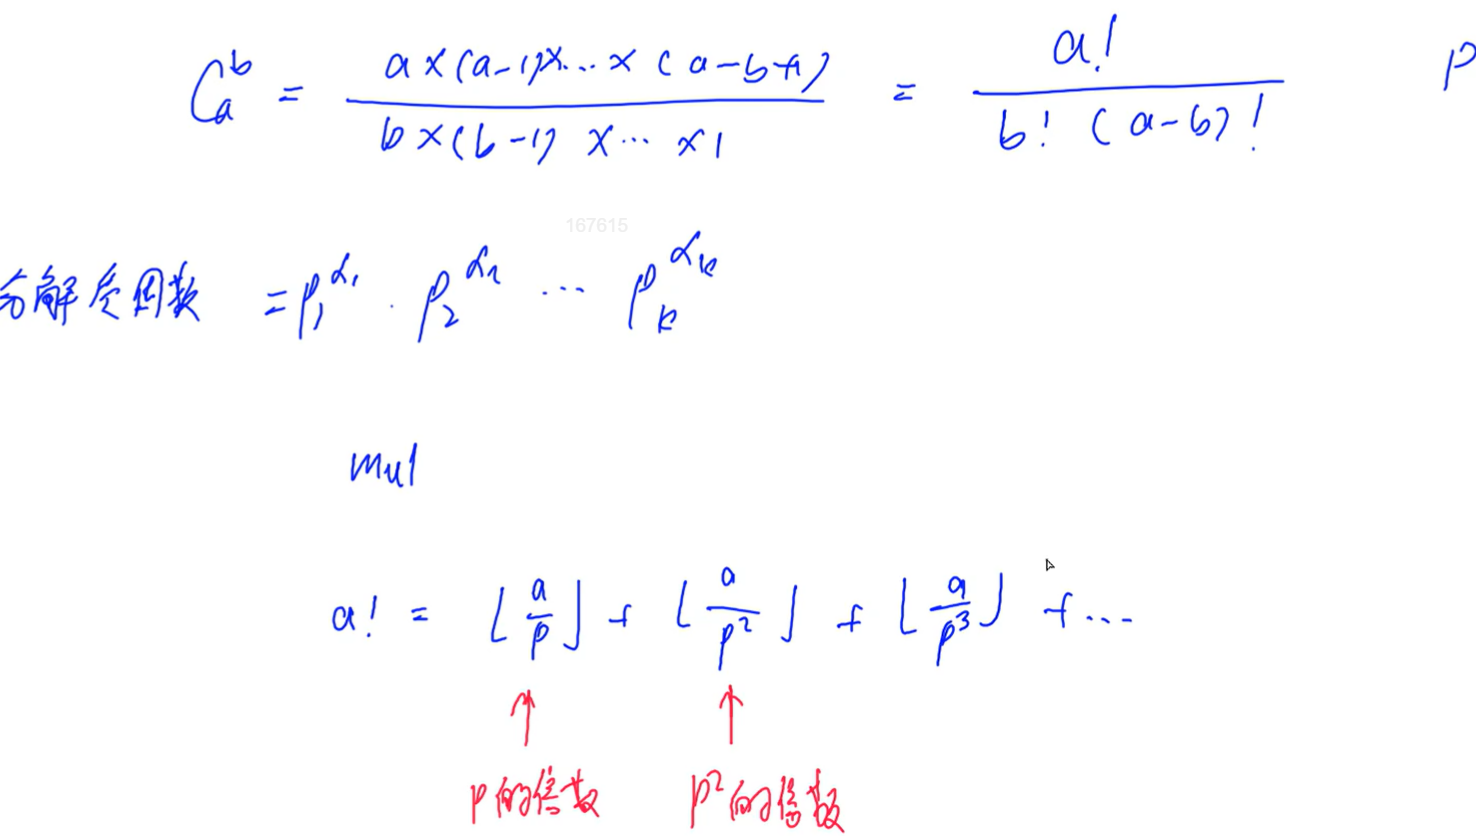 C_a^b = \frac{a×(a-1)×...×(a-b+1)}{b×(b-1)×...×1} = \frac{a!}{b!(a-b)!} P
167615
分解质因数 = p_1^{α_1} · p_2^{α_2} ... p_k^{α_k}
mul
a! = ⌊\frac{a}{p}⌋ + ⌊\frac{a}{p^2}⌋ + ⌊\frac{a}{p^3}⌋ + ...
↑ ↑
p的倍数 p^2的倍数